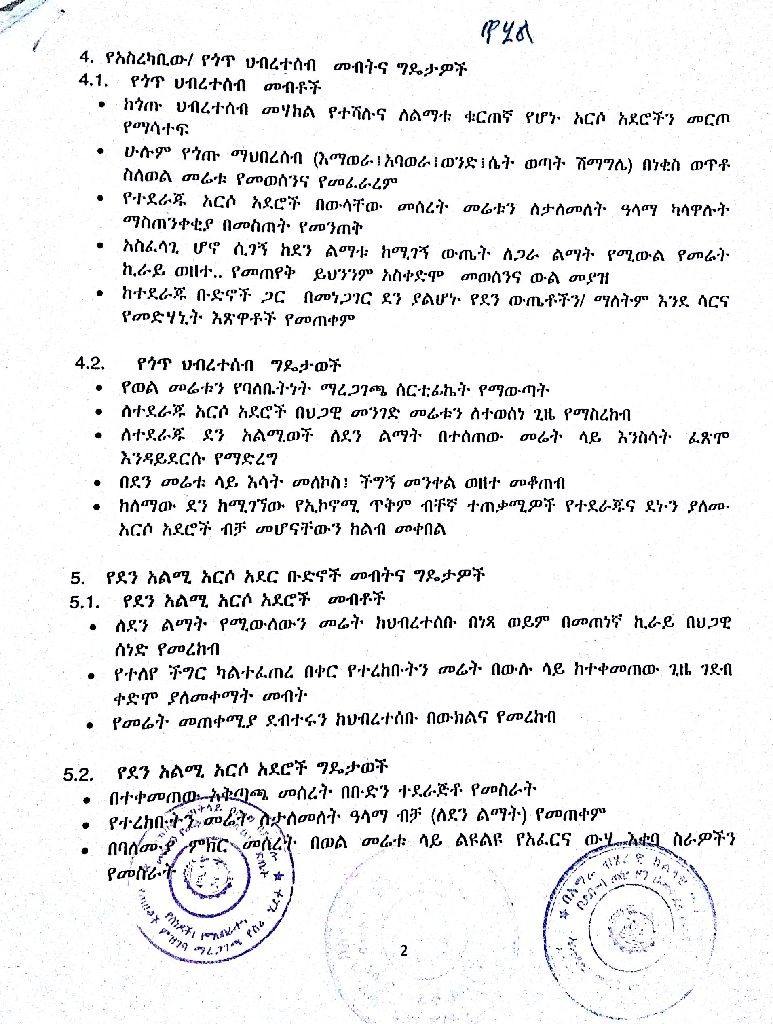 ውሃል
4. የአስረካቢው/ የጎጥ ህብረተሰብ መብትና ግዴታዎች
4.1. የጎጥ ህብረተሰብ መብቶች
• ከጎጡ ህብረተሰብ መሃከል የተሻሉና ለልማቱ ቁርጠኛ የሆኑ አርሶ አደሮችን መርጦ
የማሳተፍ
• ሁሉም የጎጡ ማህበረሰብ (እማወራ፣አባወራ፣ወንድ፣ሴት ወጣት ሽማግሌ) በነቂስ ወጥቶ
ስለወል መሬቱ የመወሰንና የመፈራረም
• የተደራጁ አርሶ አደሮች በውላቸው መሰረት መሬቱን ለታለመለት ዓላማ ካላዋሉት
ማስጠንቀቂያ በመስጠት የመንጠቅ
• አስፈላጊ ሆኖ ሲገኝ ከደን ልማቱ ከሚገኝ ውጤት ለጋራ ልማት የሚውል የመሬት
ኪራይ ወዘተ.. የመጠየቅ ይህንንም አስቀድሞ መወሰንና ውል መያዝ
• ከተደራጁ ቡድኖች ጋር በመነጋገር ደን ያልሆኑ የደን ውጤቶችን/ ማለትም እንደ ሳርና
የመድሃኒት እጽዋቶች የመጠቀም
4.2. የጎጥ ህብረተሰብ ግዴታወች
• የወል መሬቱን የባለቤትነት ማረጋገጫ ሰርተፊኬት የማውጣት
• ለተደራጁ አርሶ አደሮች በህጋዊ መንገድ መሬቱን ለተወሰነ ጊዜ የማስረከብ
• ለተደራጁ ደን አልሚወች ለደን ልማት በተሰጠው መሬት ላይ እንስሳት ፈጽሞ
እንዳይደርሱ የማድረግ
• በደን መሬቱ ላይ እሳት መለኮስ፣ ችግኝ መንቀል ወዘተ መቆጠብ
• ከለማው ደን ከሚገኘው የኢኮኖሚ ጥቅም ብቸኛ ተጠቃሚዎች የተደራጁና ደኑን ያለሙ
አርሶ አደሮች ብቻ መሆናቸውን ከልብ መቀበል
5. የደን አልሚ አርሶ አደር ቡድኖች መብትና ግዴታዎች
5.1. የደን አልሚ አርሶ አደሮች መብቶች
• ለደን ልማት የሚውለውን መሬት ከህብረተሰቡ በነጻ ወይም በመጠነኛ ኪራይ በህጋዊ
ሰነድ የመረከብ
• የተለየ ችግር ካልተፈጠረ በቀር የተረከቡትን መሬት በውሉ ላይ ከተቀመጠው ጊዜ ገደብ
ቀድሞ ያለመቀማት መብት
• የመሬት መጠቀሚያ ደብተሩን ከህብረተሰቡ በውክልና የመረከብ
5.2. የደን አልሚ አርሶ አደሮች ግዴታወች
• በተቀመጠው አቅጣጫ መሰረት በቡድን ተደራጅቶ የመስራት
• የተረከቡትን መሬት ለታለመለት ዓላማ ብቻ (ለደን ልማት) የመጠቀም
• በባለሙያ ምክር መሰረት በወል መሬቱ ላይ ልዩልዩ የአፈርና ውሃ እቀባ ስራዎችን
የመስራት
2